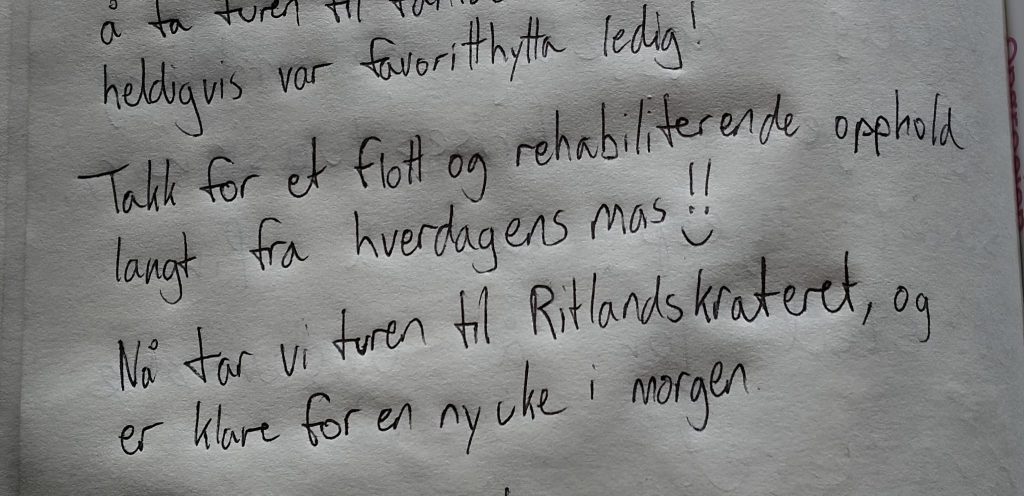 å ta turen til
heldigvis var favoritthytta ledig!
Takk for et flott og rehabiliterende opphold
langt fra hverdagens mas!!
Nå tar vi turen til Ritlandskrateret, og
er klare for en ny uke i morgen.